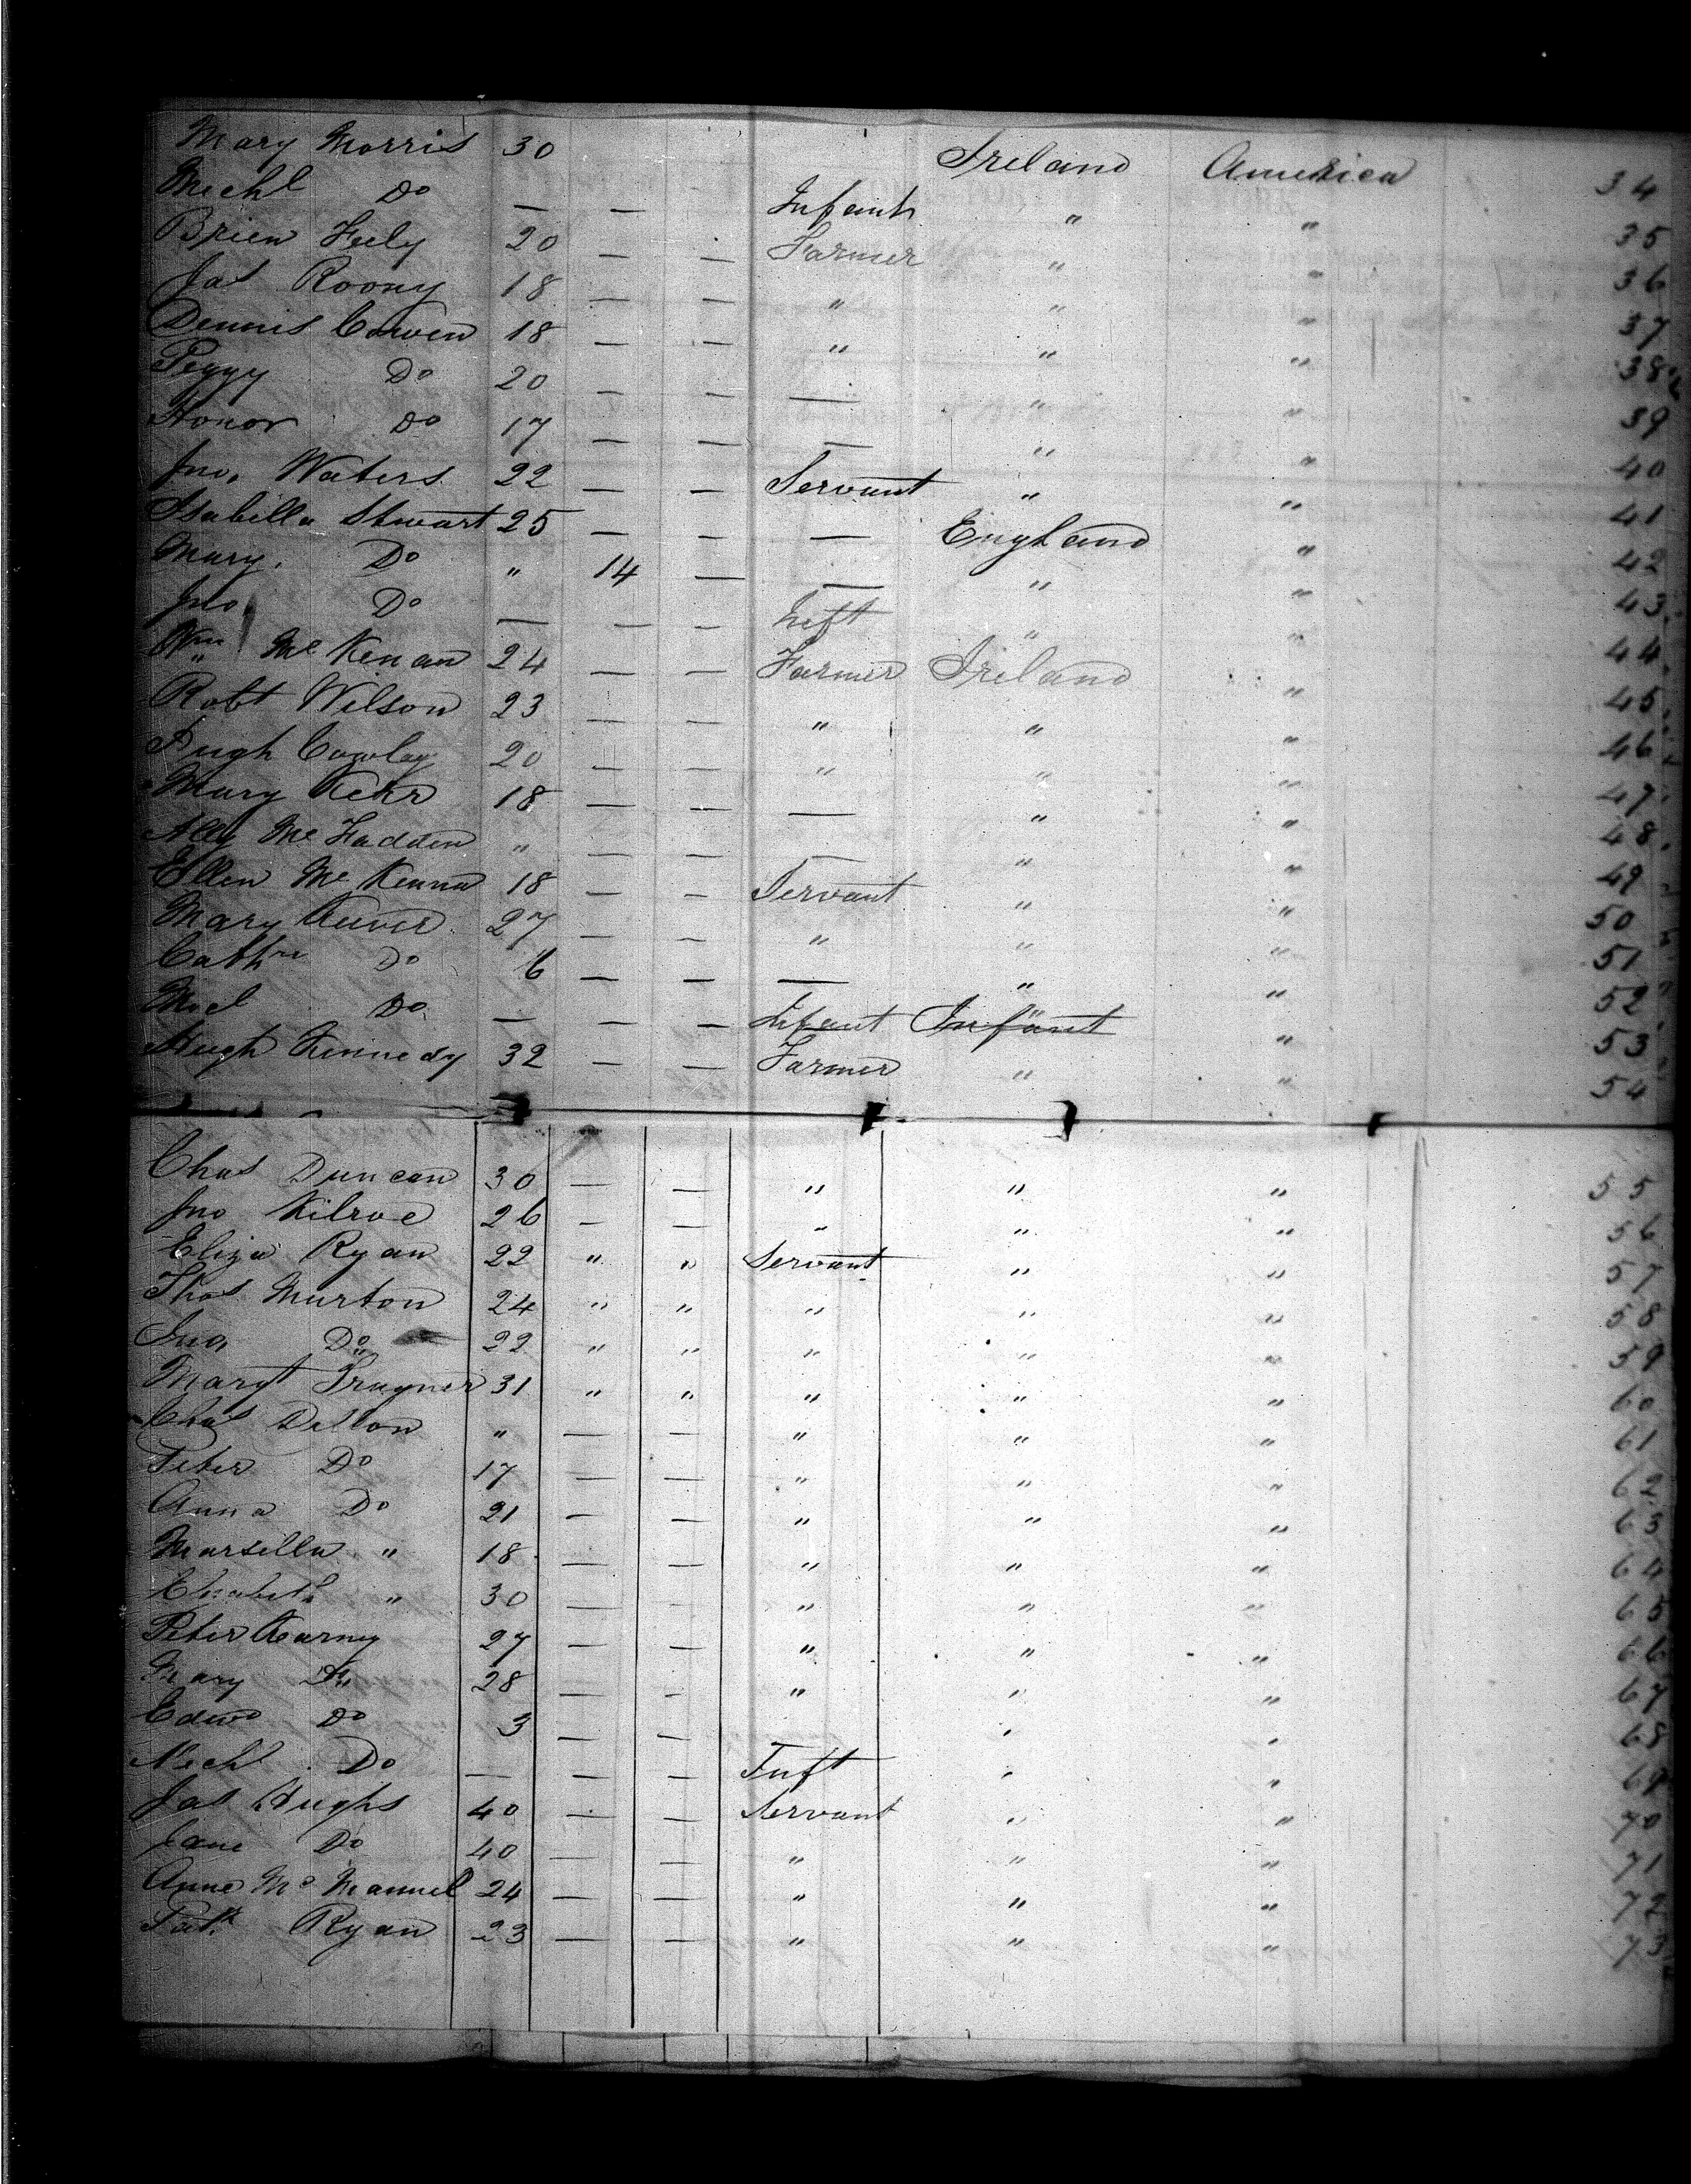 Mary Morris 30 Ireland America 34
Michl Do — — Infant " " 35
Brien Feely 20 — — Farmer " " 36
Jas Roony 18 — — " " " 37
Dennis Corven 18 — — " " " 38
Peggy Do 20 — — — " " 39
Honor Do 17 — — — " " 40
Jno. Waters 22 — — Servant " " 41
Isabella Stewart 25 — — — England " 42
Mary. Do " 14 — — " " 43
Jno. Do — — — Inft " " 44
Wm Mc Kenan 24 — — Farmer Ireland " 45
Robt Wilson 23 — — " " " 46
Hugh Cowley 20 — — " " " 47
Mary Kehr 18 — — — " " 48
Ally Mc Fadden " — — — " " 49
Ellen Mc Kenna 18 — — Servant " " 50
Mary 27 — — " " " 51
Cathne Do 6 — — — " " 52
Micl Do — — — Infant Infant " 53
Hugh Kennedy 32 — — Farmer " " 54
Chas Duncan 30 — — " " " 55
Jno Kilroe 26 — — " " " 56
Eliza Ryan 22 " " Servant " " 57
Thos Murton 24 " " " " " 58
Jno, Do 22 " " " " " 59
Margt Traynor 31 " " " " " 60
Chas Dillon " — — " " " 61
Peter Do 17 — — " " " 62
Anna Do 21 — — " " " 63
Marsella " 18 — — " " " 64
Elizabeth " 30 — — " " " 65
Peter Kearney 27 — — " " " 66
Mary Do 28 — — " " " 67
Edwd Do 3 — — " " 68
Michl Do — — — Inft " " 69
Jas Hughs 40 — — Servant " " 70
Jane Do 40 — — " " " 71
Anne Mc Mannel 24 — — " " " 72
Patk Ryan 23 — — " " " 73